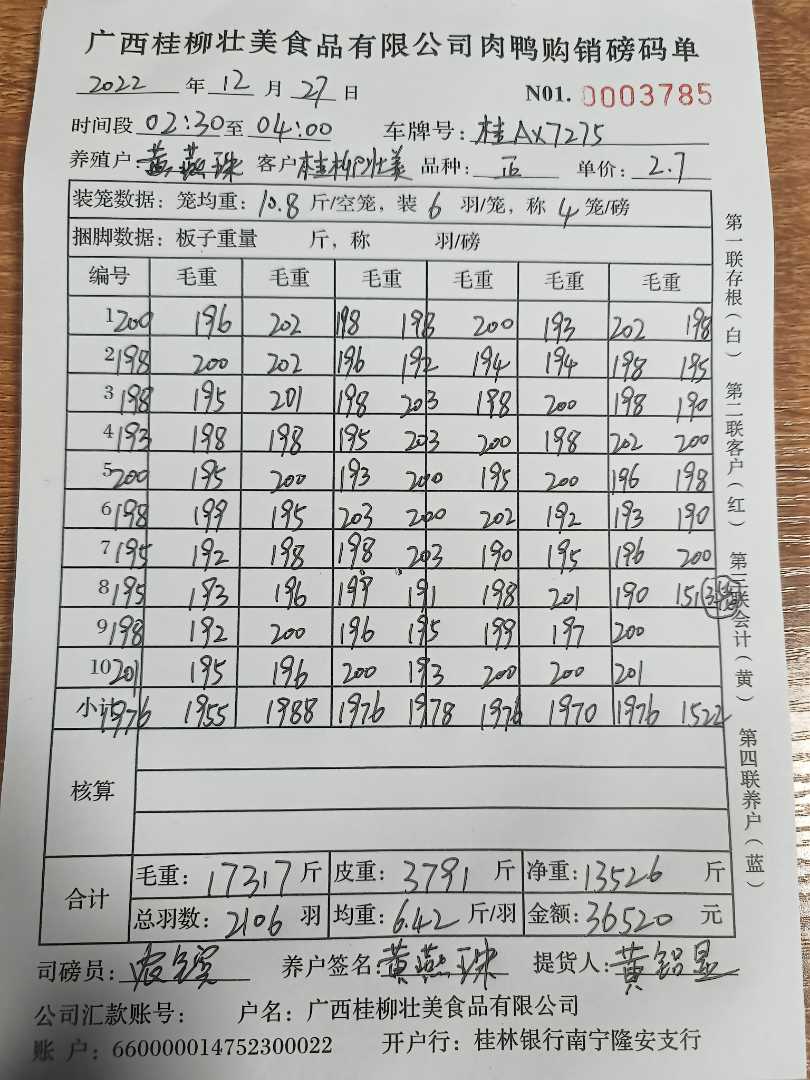 广西桂柳壮美食品有限公司肉鸭购销磅码单
2022 年 12 月 27 日 N01. 0003785
时间段 02:30至 04:00 车牌号: 桂AX7275
养殖户: 黄燕珠 客户 桂柳壮美 品种: 正 单价: 2.7
装笼数据: 笼均重: 10.8 斤/空笼, 装 6 羽/笼, 称 4 笼/磅
捆脚数据: 板子重量 斤, 称 羽/磅
编号 毛重 毛重 毛重 毛重 毛重 毛重
1 200 196 202 198 198 200 193 202 198
2 198 200 202 196 192 194 194 198 195
3 198 195 201 198 203 198 200 198 190
4 193 198 198 195 203 200 198 202 200
5 200 195 200 193 200 195 200 196 198
6 198 199 195 203 200 202 192 193 190
7 195 192 198 198 203 190 195 196 200
8 195 193 196 199 191 198 201 190 151
9 198 192 200 196 195 199 197 200
10 201 195 196 200 193 200 200 201
小计 1976 1955 1988 1976 1978 1976 1970 1976 1522
核算
合计
毛重: 17317 斤 皮重: 3791 斤 净重: 13526 斤
总羽数: 2106 羽 均重: 6.42 斤/羽 金额: 36520 元
司磅员: 养户签名: 黄燕珠 提货人: 黄
公司汇款账号: 户名: 广西桂柳壮美食品有限公司
账 户: 660000014752300022 开户行: 桂林银行南宁隆安支行
第一联存根(白) 第二联客户(红) 第三联会计(黄) 第四联养户(蓝)